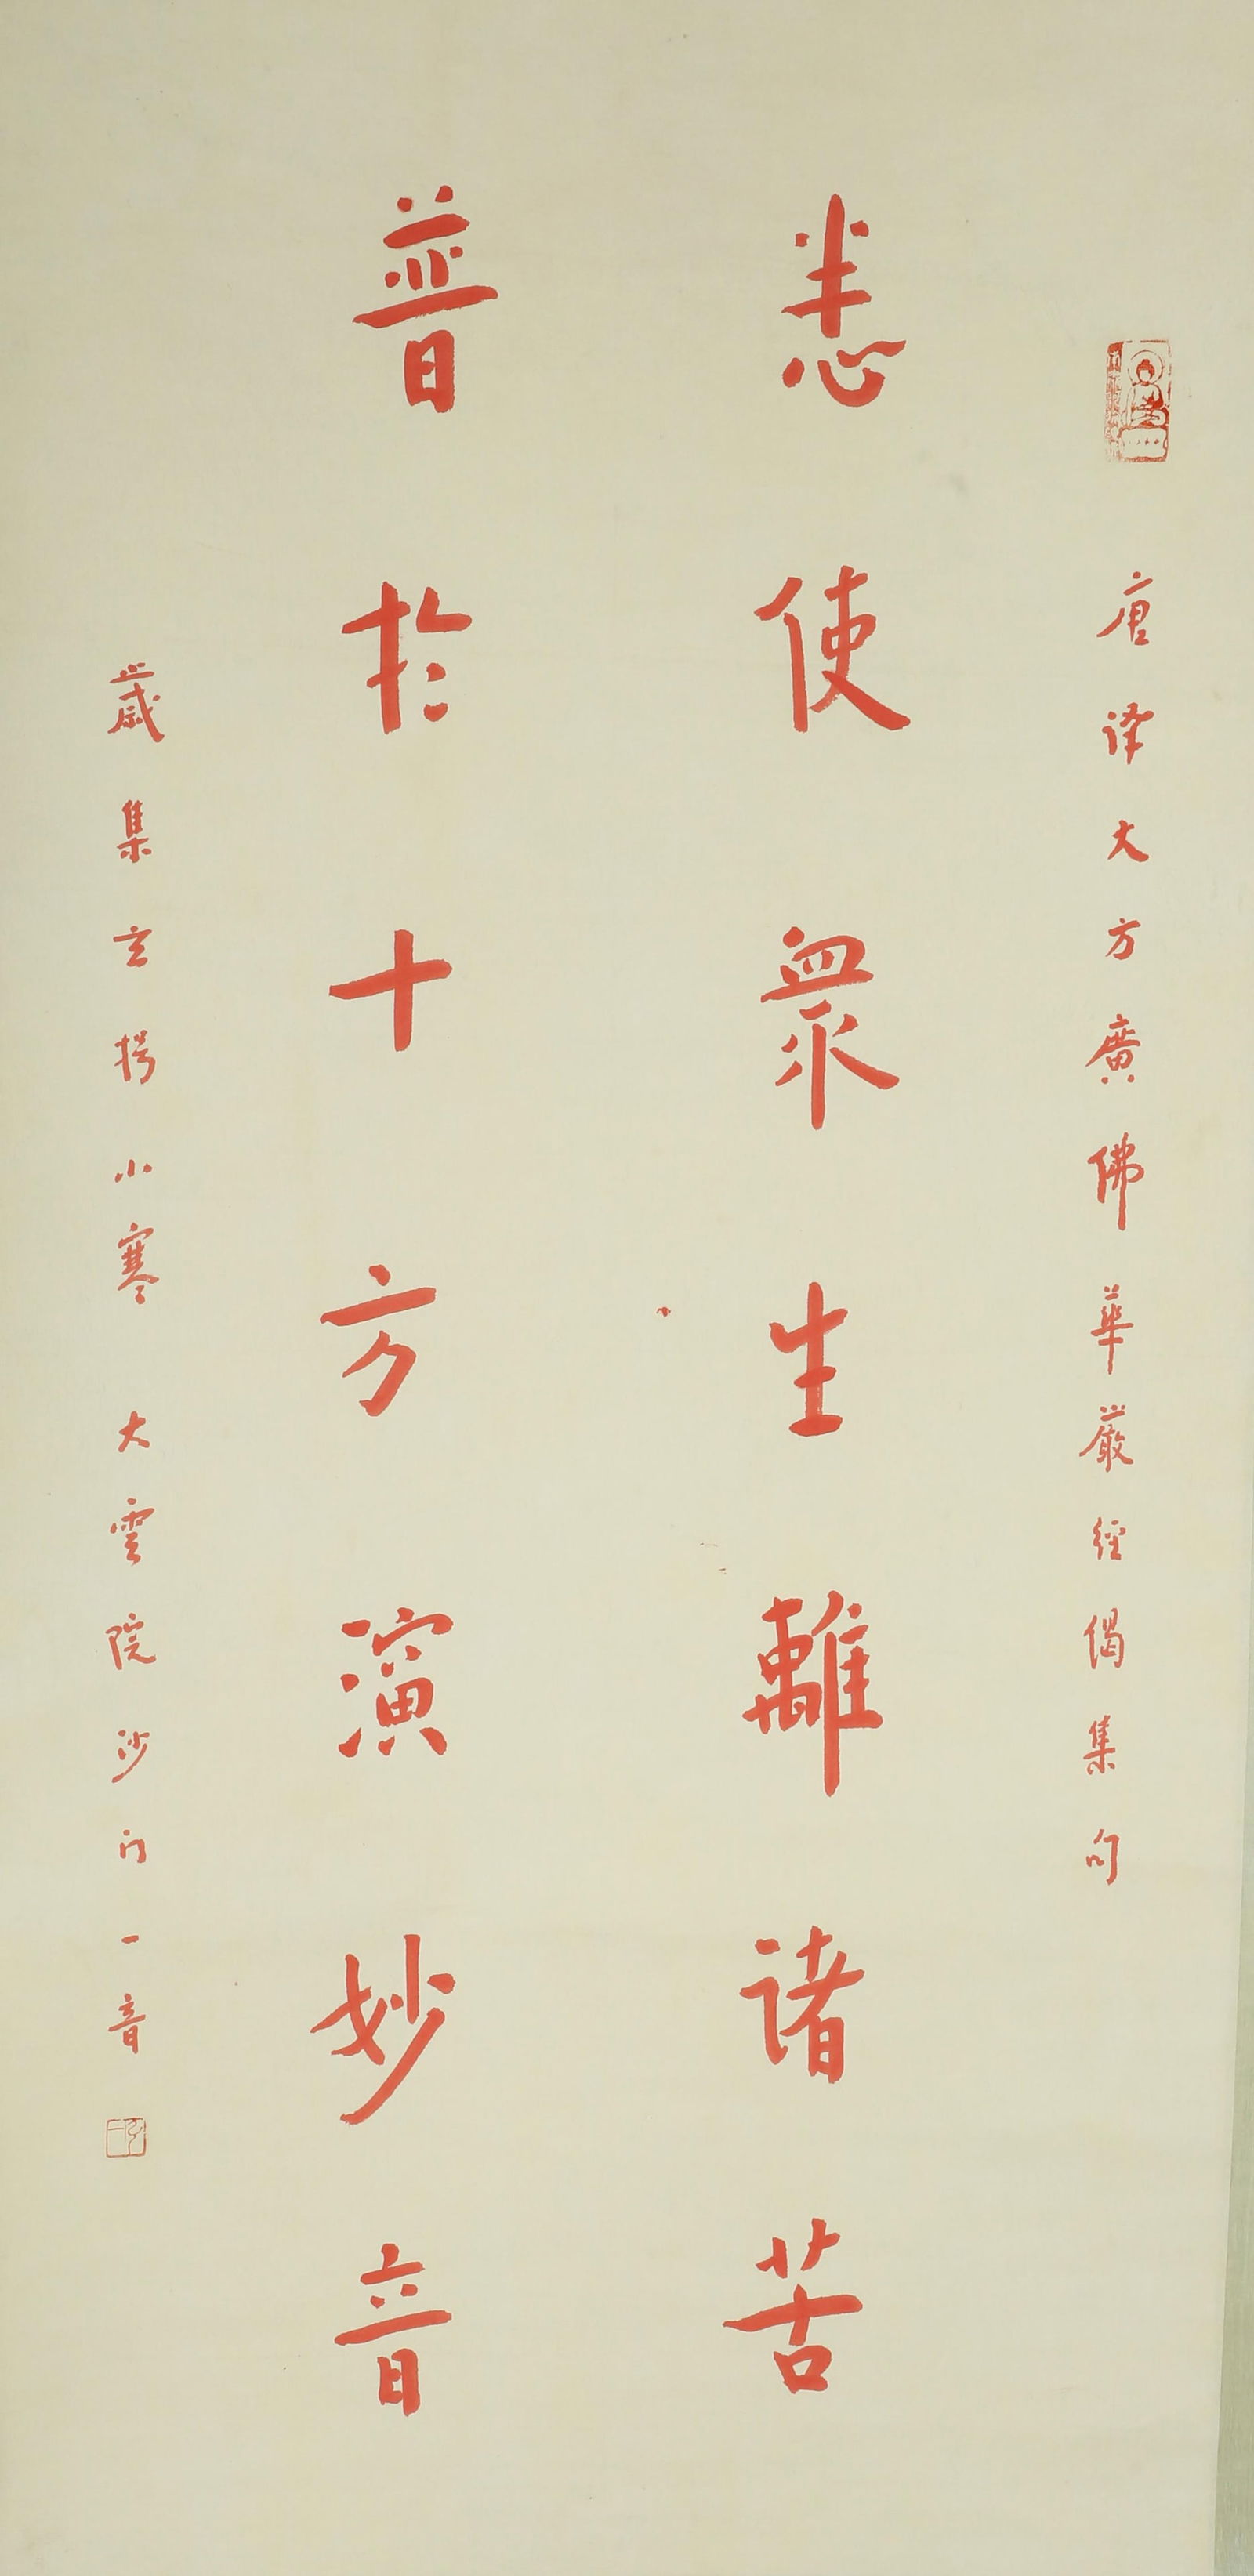 唐译大方廣佛華嚴經偈集句
悉使眾生離諸苦
普於十方演妙音
歲集玄枵小寒 大雲院沙门一音